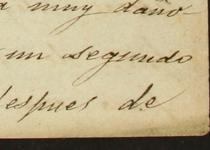 a muy daño-
un segundo
despues de